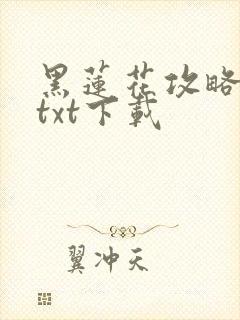 黑蓮花攻略
txt下載
翼冲天